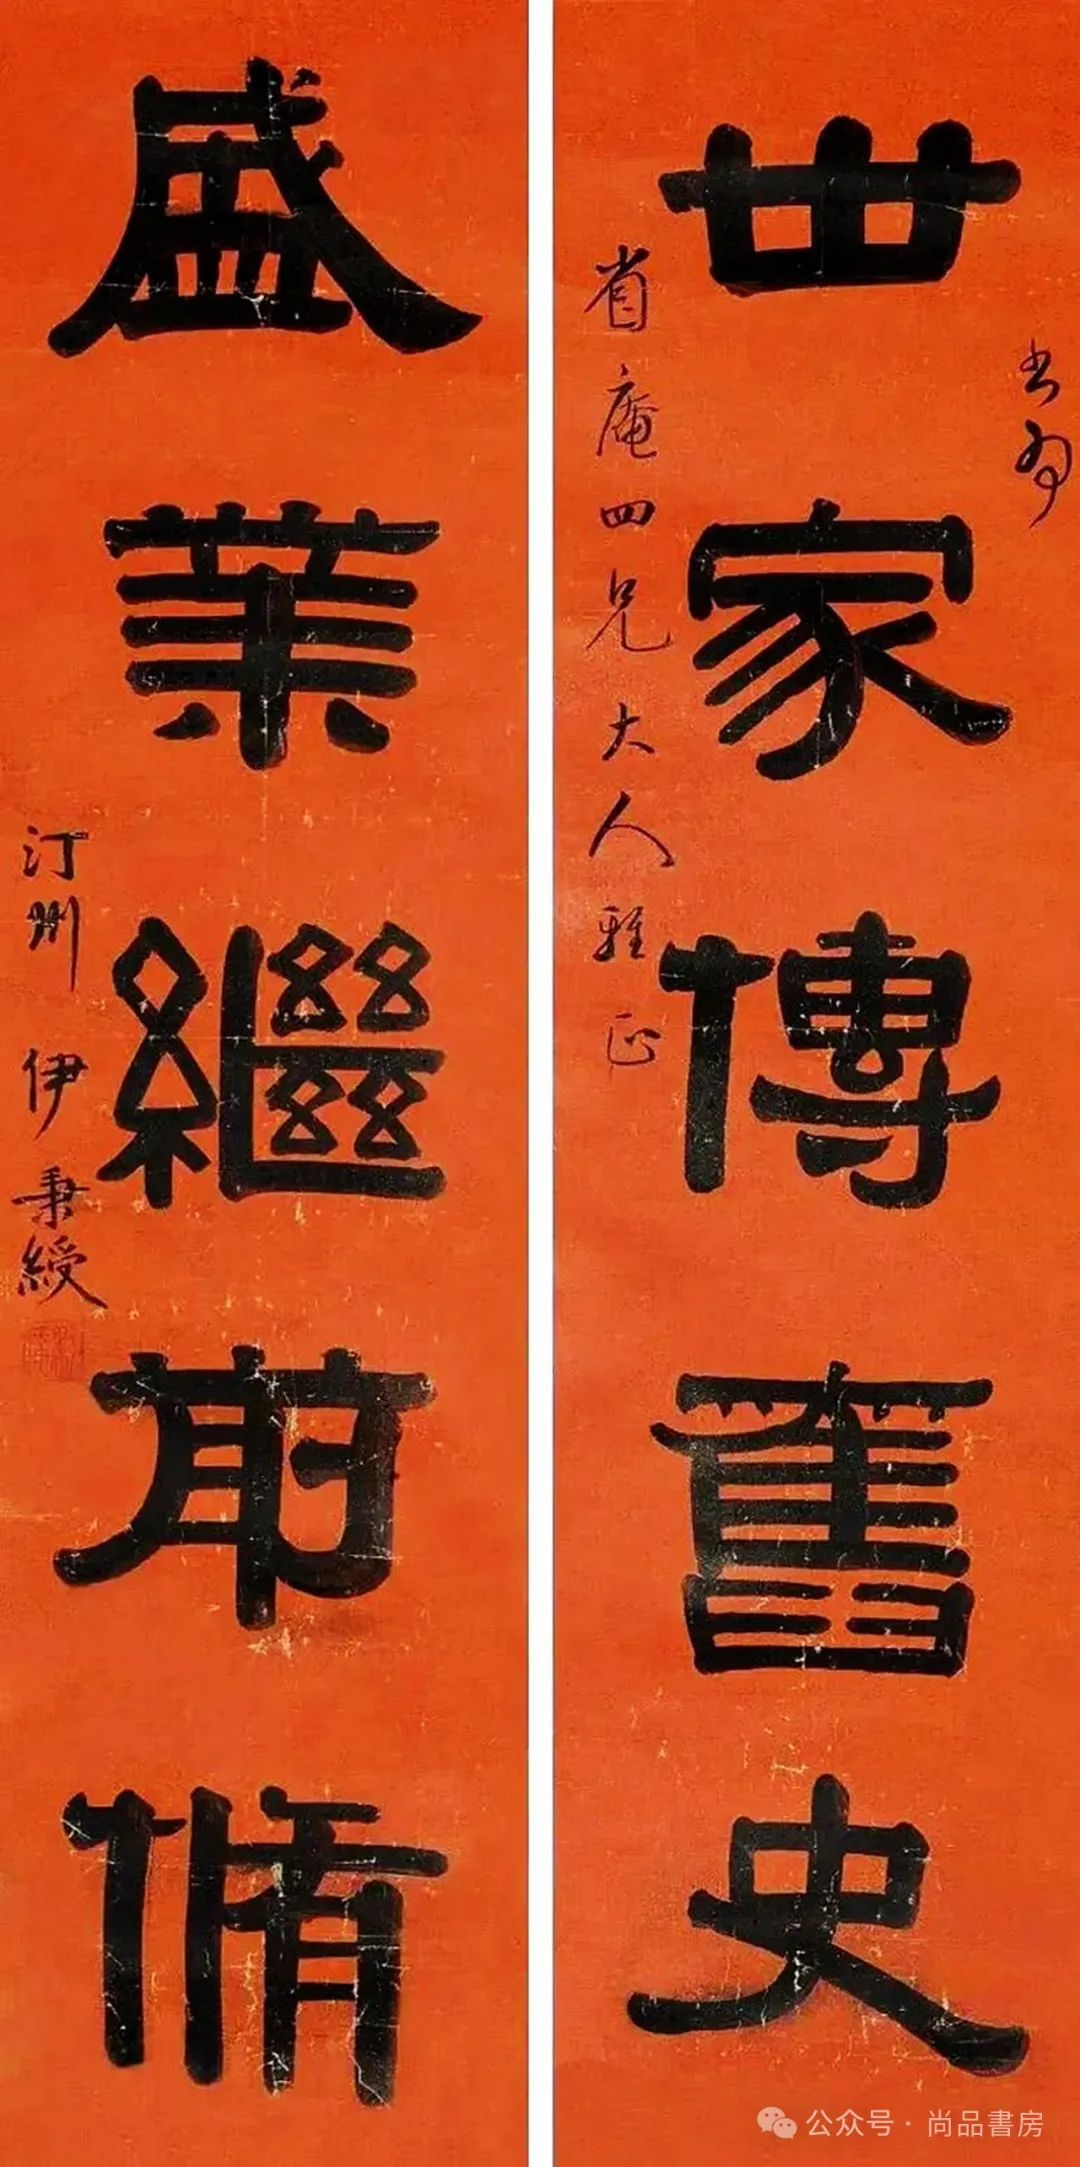 世家傳舊史
書為
省庵四兄大人雅正
盛業繼前脩
汀州伊秉綬
公众号·尚品書房